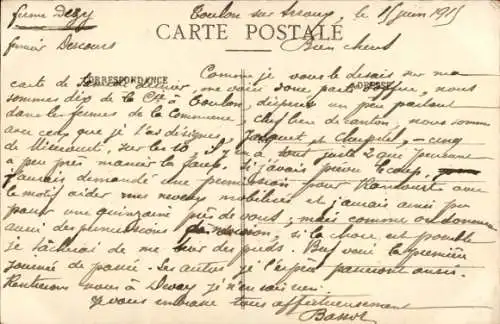 ferme Dezy
Toulon sur Arroux, le 15 juin 1915
CARTE POSTALE
fermier Descours
Bien chers
CORRESPONDANCE
ADRESSE
Comme je vous le disais sur ma
carte de samedi dernier, me voici sous parti, nous
sommes dix de la Cie à Toulon, dispersés un peu partout
dans les fermes de la Commune, chef lieu de canton, nous sommes
avec ceux que je t'as désignés, Jacquet et — cinq
de sur les 10, il y en a tout juste 2 que peuvent
a peu près manier la faux. Si j'avais prévu le coup,
j'aurais demandé une permission pour avec
le motif aider mes neveux mobilisés et j'aurais ainsi pu
passer une quinzaine près de vous, mais comme on donnera
aussi des permissions de moisson, si la chose est possible
je tâcherai de me tirer des pieds. Bref voici la première
journée de passée. Les autres je l'espère passeront aussi.
nous à je n'en sais rien.
Je vous embrasse tous affectueusement